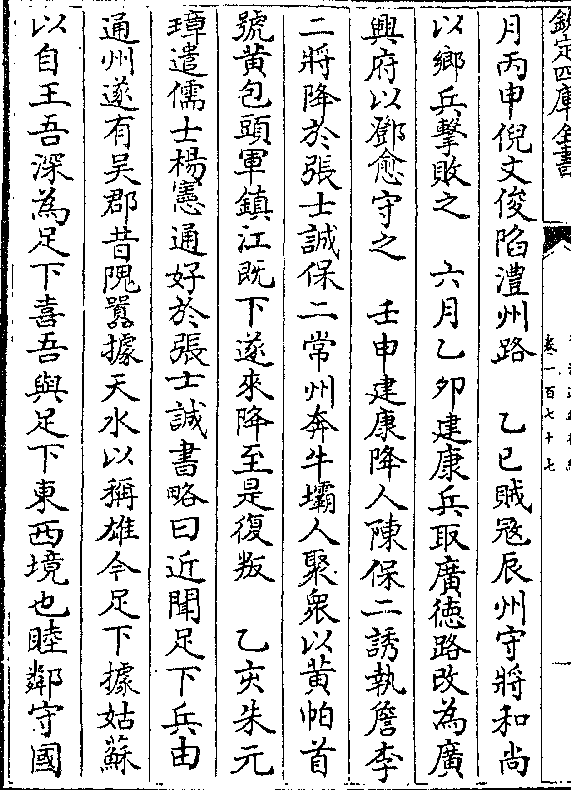 欽定四庫全書
卷一百七十七
月丙申倪文俊陷澧州路　乙巳賊寇辰州守將和尚
以鄉兵擊敗之　六月乙卯建康兵取廣德路改為廣
興府以鄧愈守之　壬申建康降人陳保二誘執詹李
二將降於張士誠保二常州奔牛壩人聚衆以黄帕首
號黄包頭軍鎮江既下遂來降至是復叛　乙亥朱元
璋遣儒士楊憲通好於張士誠書略曰近聞足下兵由
通州遂有吳郡昔隗囂據天水以稱雄今足下據姑蘇
以自王吾深為足下喜吾與足下東西境也睦鄰守國